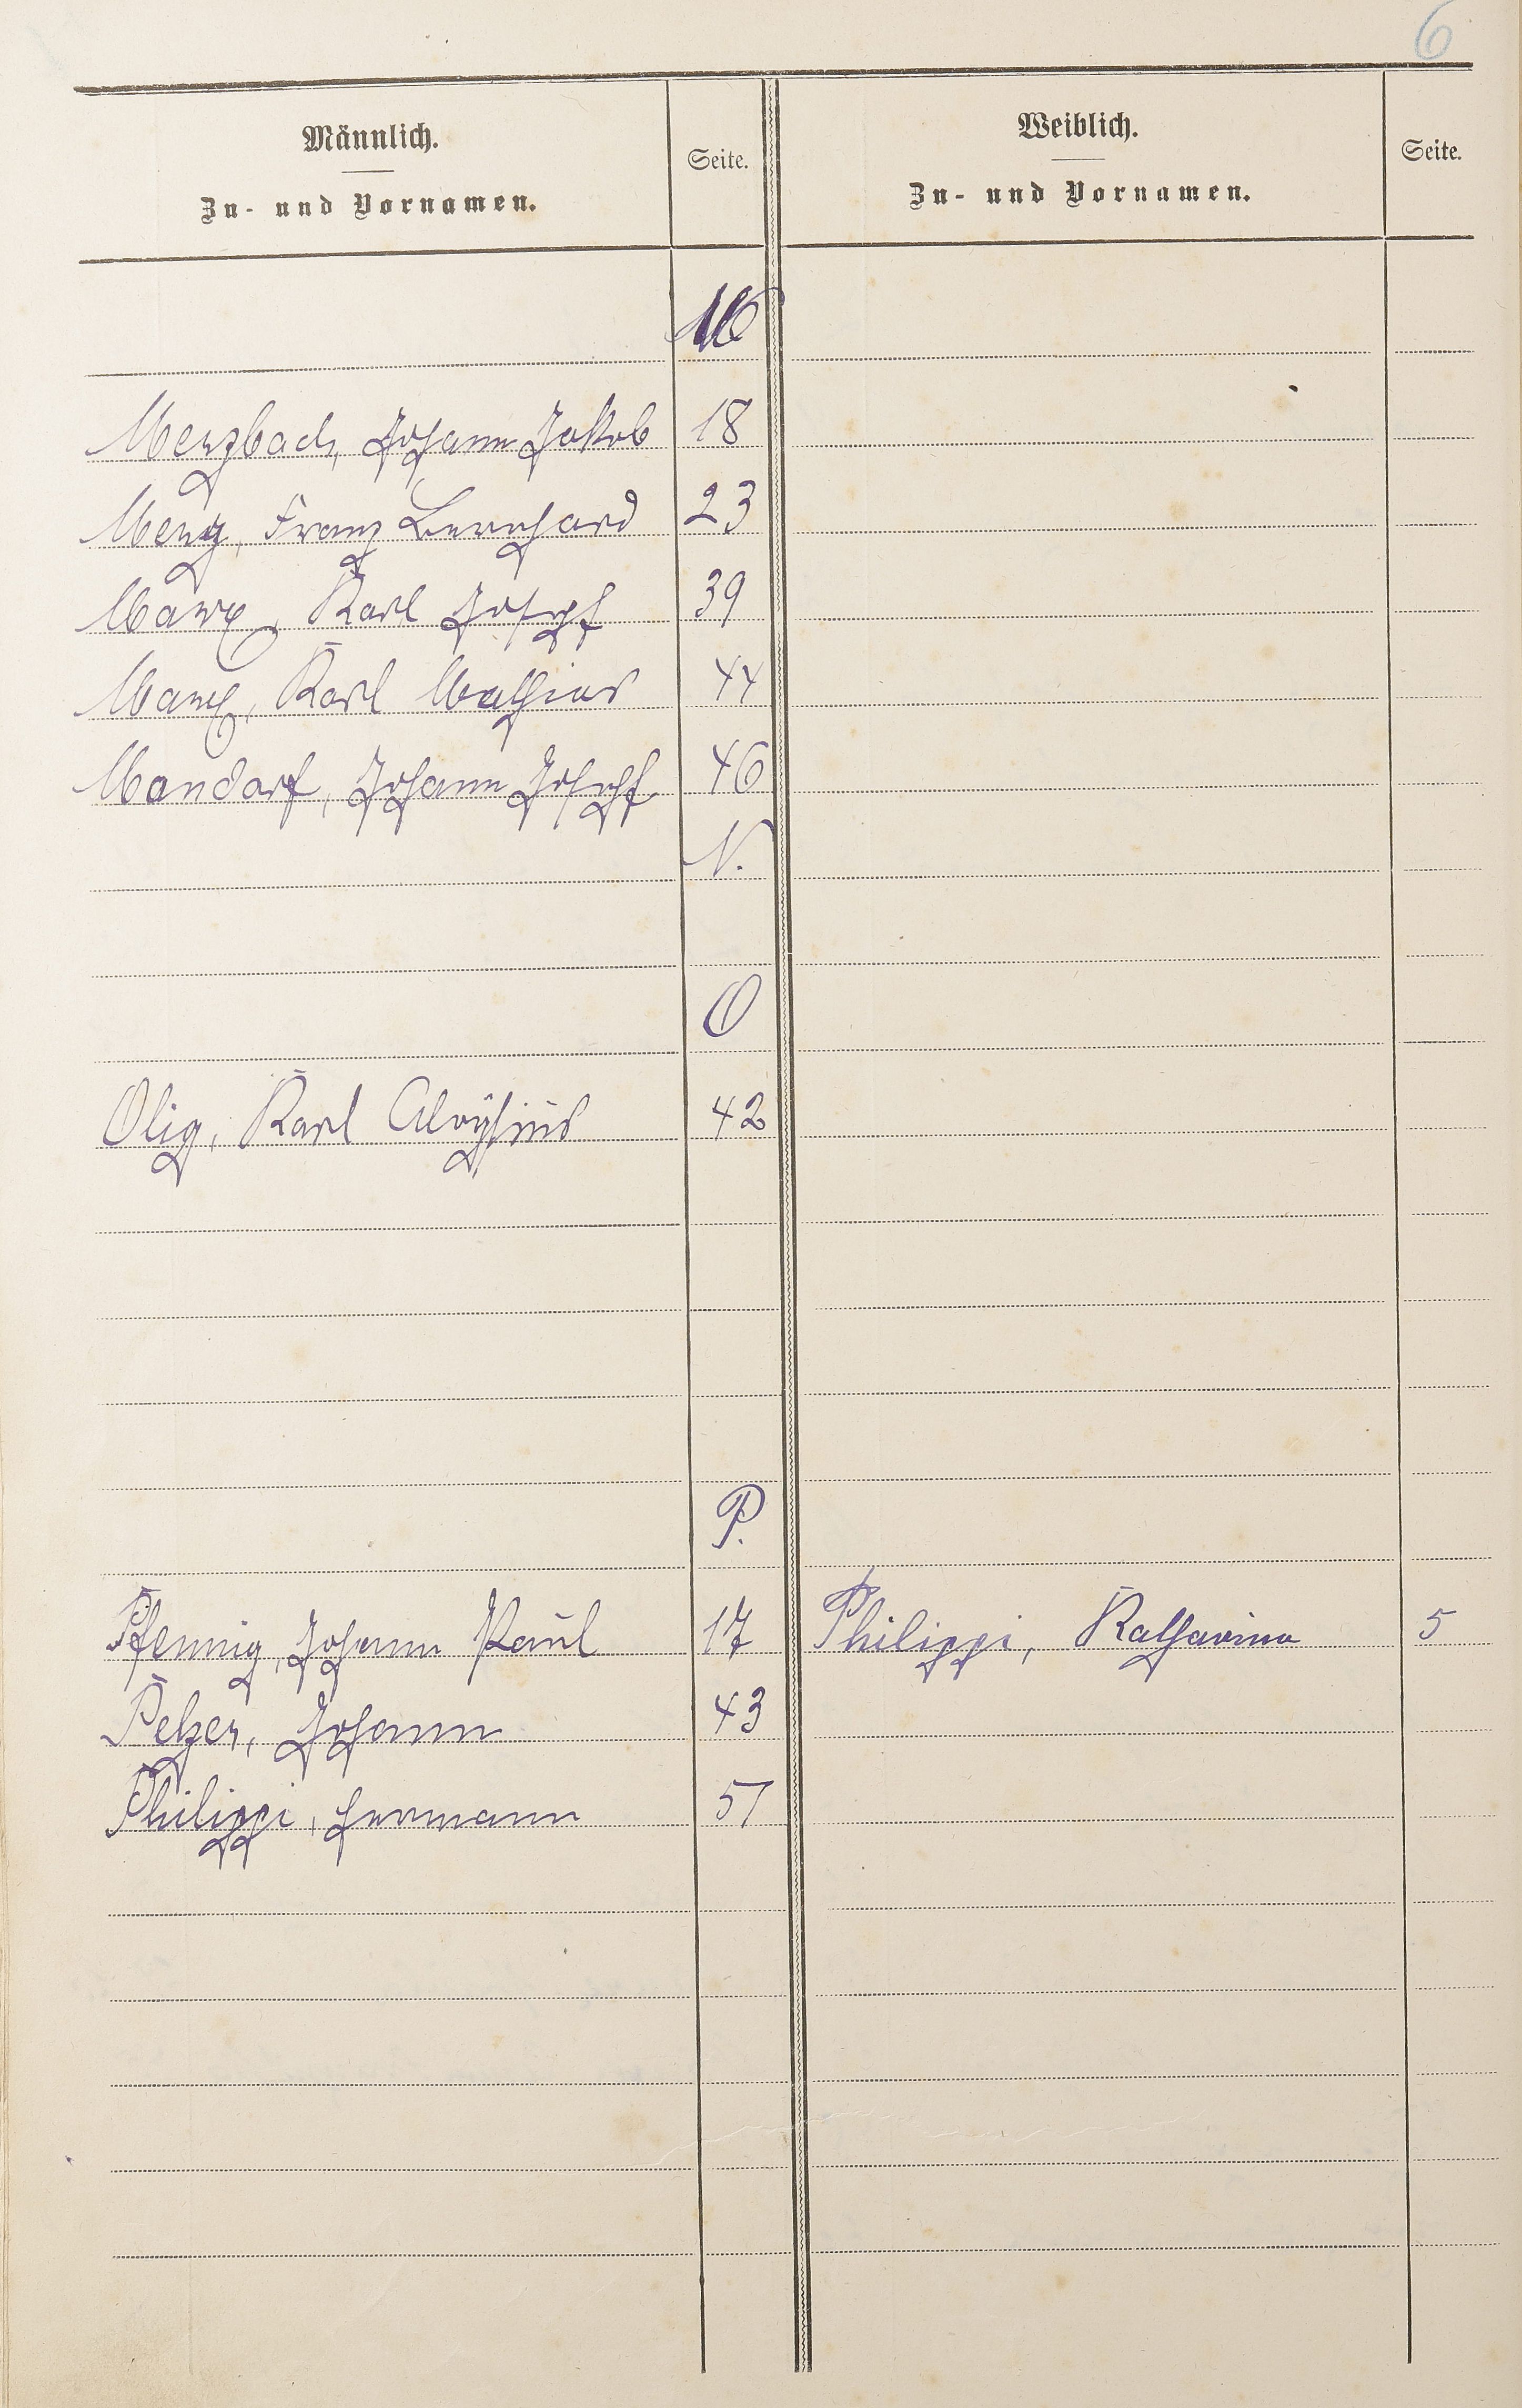 6
Männlich.
Zu- und Vornamen.
Seite.
Weiblich.
Zu- und Vornamen.
Seite.
M
Merzbach, Johann Jakob 18
Merz, Franz Bernhard 23
Marx, Karl Joseph 39
Marx, Karl Mathias 44
Mandorf, Johann Joseph 46
N.
O
Olig, Karl Aloÿsius 42
P.
Pfennig, Johann Paul 17 Philippi, Katharina 5
Pelzer, Johann 43
Philippi, Hermann 51